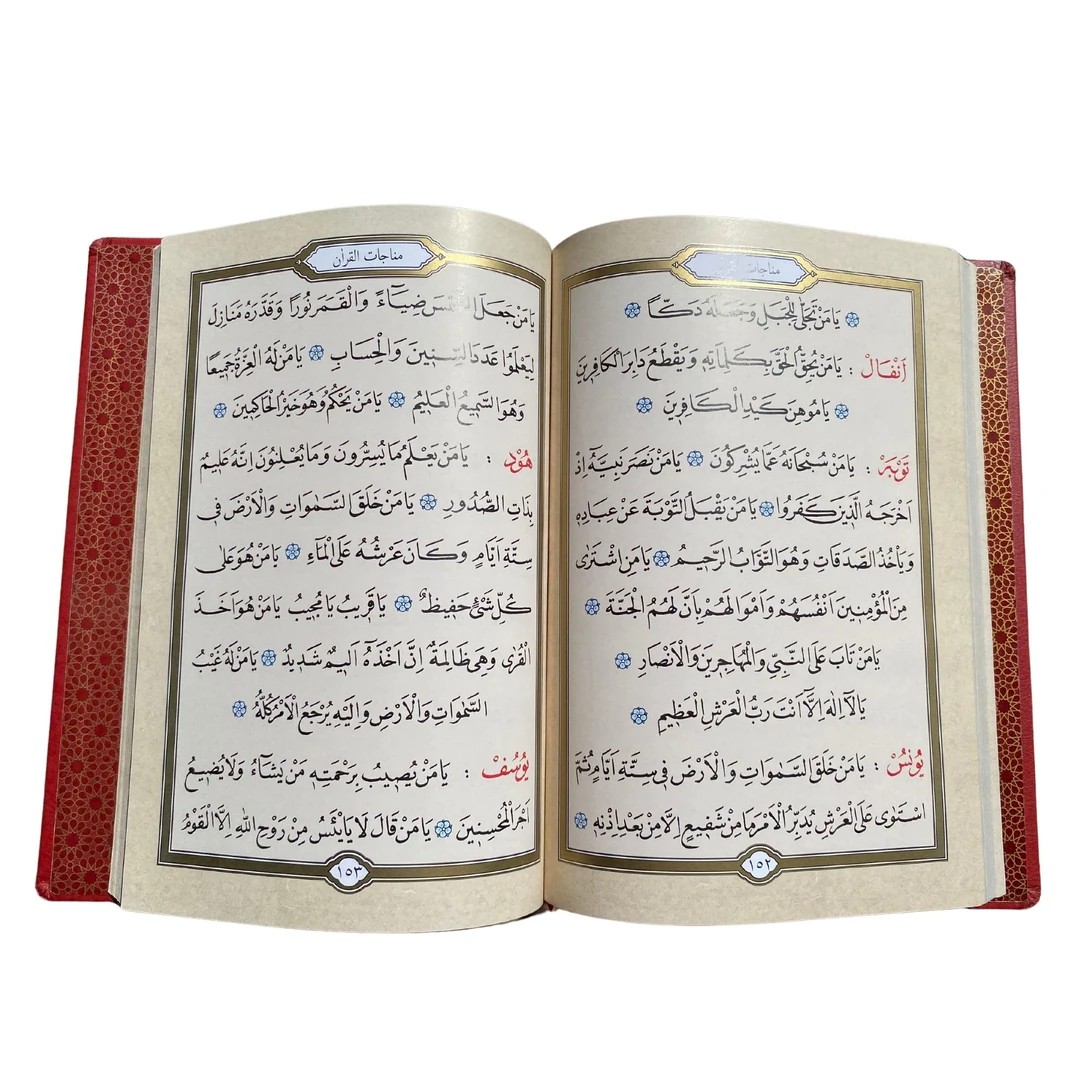 مناجات القرآن
يَا مَنْ تَجَلّٰى لِلْجَبَلِ وَجَعَلَهُ دَكًّا
اَنْفَالْ : يَا مَنْ يُحِقُّ الْحَقَّ بِكَلِمَاتِهِ وَيَقْطَعُ دَابِرَ الْكَافِرِينَ
يَا مُوهِنَ كَيْدِ الْكَافِرِينَ
تَوْبَه : يَا مَنْ سُبْحَانَهُ عَمَّا يُشْرِكُونَ يَا مَنْ نَصَرَ نَبِيَّهُ اِذْ
اَخْرَجَهُ الَّذِينَ كَفَرُوا يَا مَنْ يَقْبَلُ التَّوْبَةَ عَنْ عِبَادِهِ
وَيَأْخُذُ الصَّدَقَاتِ وَهُوَ التَّوَّابُ الرَّحِيمُ يَا مَنِ اشْتَرٰى
مِنَ الْمُؤْمِنِينَ اَنْفُسَهُمْ وَاَمْوَالَهُمْ بِاَنَّ لَهُمُ الْجَنَّةَ
يَا مَنْ تَابَ عَلَى النَّبِيِّ وَالْمُهَاجِرِينَ وَالْاَنْصَارِ
يَا لَآ اِلٰهَ اِلَّآ اَنْتَ رَبُّ الْعَرْشِ الْعَظِيمِ
يُونُسْ : يَا مَنْ خَلَقَ السَّمٰوَاتِ وَالْاَرْضَ فِى سِتَّةِ اَيَّامٍ ثُمَّ
اسْتَوٰى عَلَى الْعَرْشِ يُدَبِّرُ الْاَمْرَ مَا مِنْ شَفِيعٍ اِلَّا مِنْ بَعْدِ اِذْنِهِ
١٥٢
مناجات القرآن
يَا مَنْ جَعَلَ الشَّمْسَ ضِيَآءً وَالْقَمَرَ نُورًا وَقَدَّرَهُ مَنَازِلَ
لِيَعْلَمُوا عَدَدَ السِّنِينَ وَالْحِسَابِ يَا مَنْ لَهُ الْعِزَّةُ جَمِيعًا
وَهُوَ السَّمِيعُ الْعَلِيمُ يَا مَنْ يَحْكُمُ وَهُوَ خَيْرُ الْحَاكِمِينَ
هُودْ : يَا مَنْ يَعْلَمُ مَا يُسِرُّونَ وَمَا يُعْلِنُونَ اِنَّهُ عَلِيمٌ
بِذَاتِ الصُّدُورِ يَا مَنْ خَلَقَ السَّمٰوَاتِ وَالْاَرْضَ فِى
سِتَّةِ اَيَّامٍ وَكَانَ عَرْشُهُ عَلَى الْمَآءِ يَا مَنْ هُوَ عَلٰى
كُلِّ شَيْءٍ حَفِيظٌ يَا قَرِيبُ يَا مُجِيبُ يَا مَنْ هُوَ اَخَذَ
الْقُرٰى وَهِىَ ظَالِمَةٌ اِنَّ اَخْذَهُ اَلِيمٌ شَدِيدٌ يَا مَنْ لَهُ غَيْبُ
السَّمٰوَاتِ وَالْاَرْضِ وَاِلَيْهِ يُرْجَعُ الْاَمْرُ كُلُّهُ
يُوسُفْ : يَا مَنْ يُصِيبُ بِرَحْمَتِهِ مَنْ يَشَآءُ وَلَا يُضِيعُ
اَجْرَ الْمُحْسِنِينَ يَا مَنْ قَالَ لَا يَايْئَسُ مِنْ رَوْحِ اللهِ اِلَّا الْقَوْمُ
١٥٣